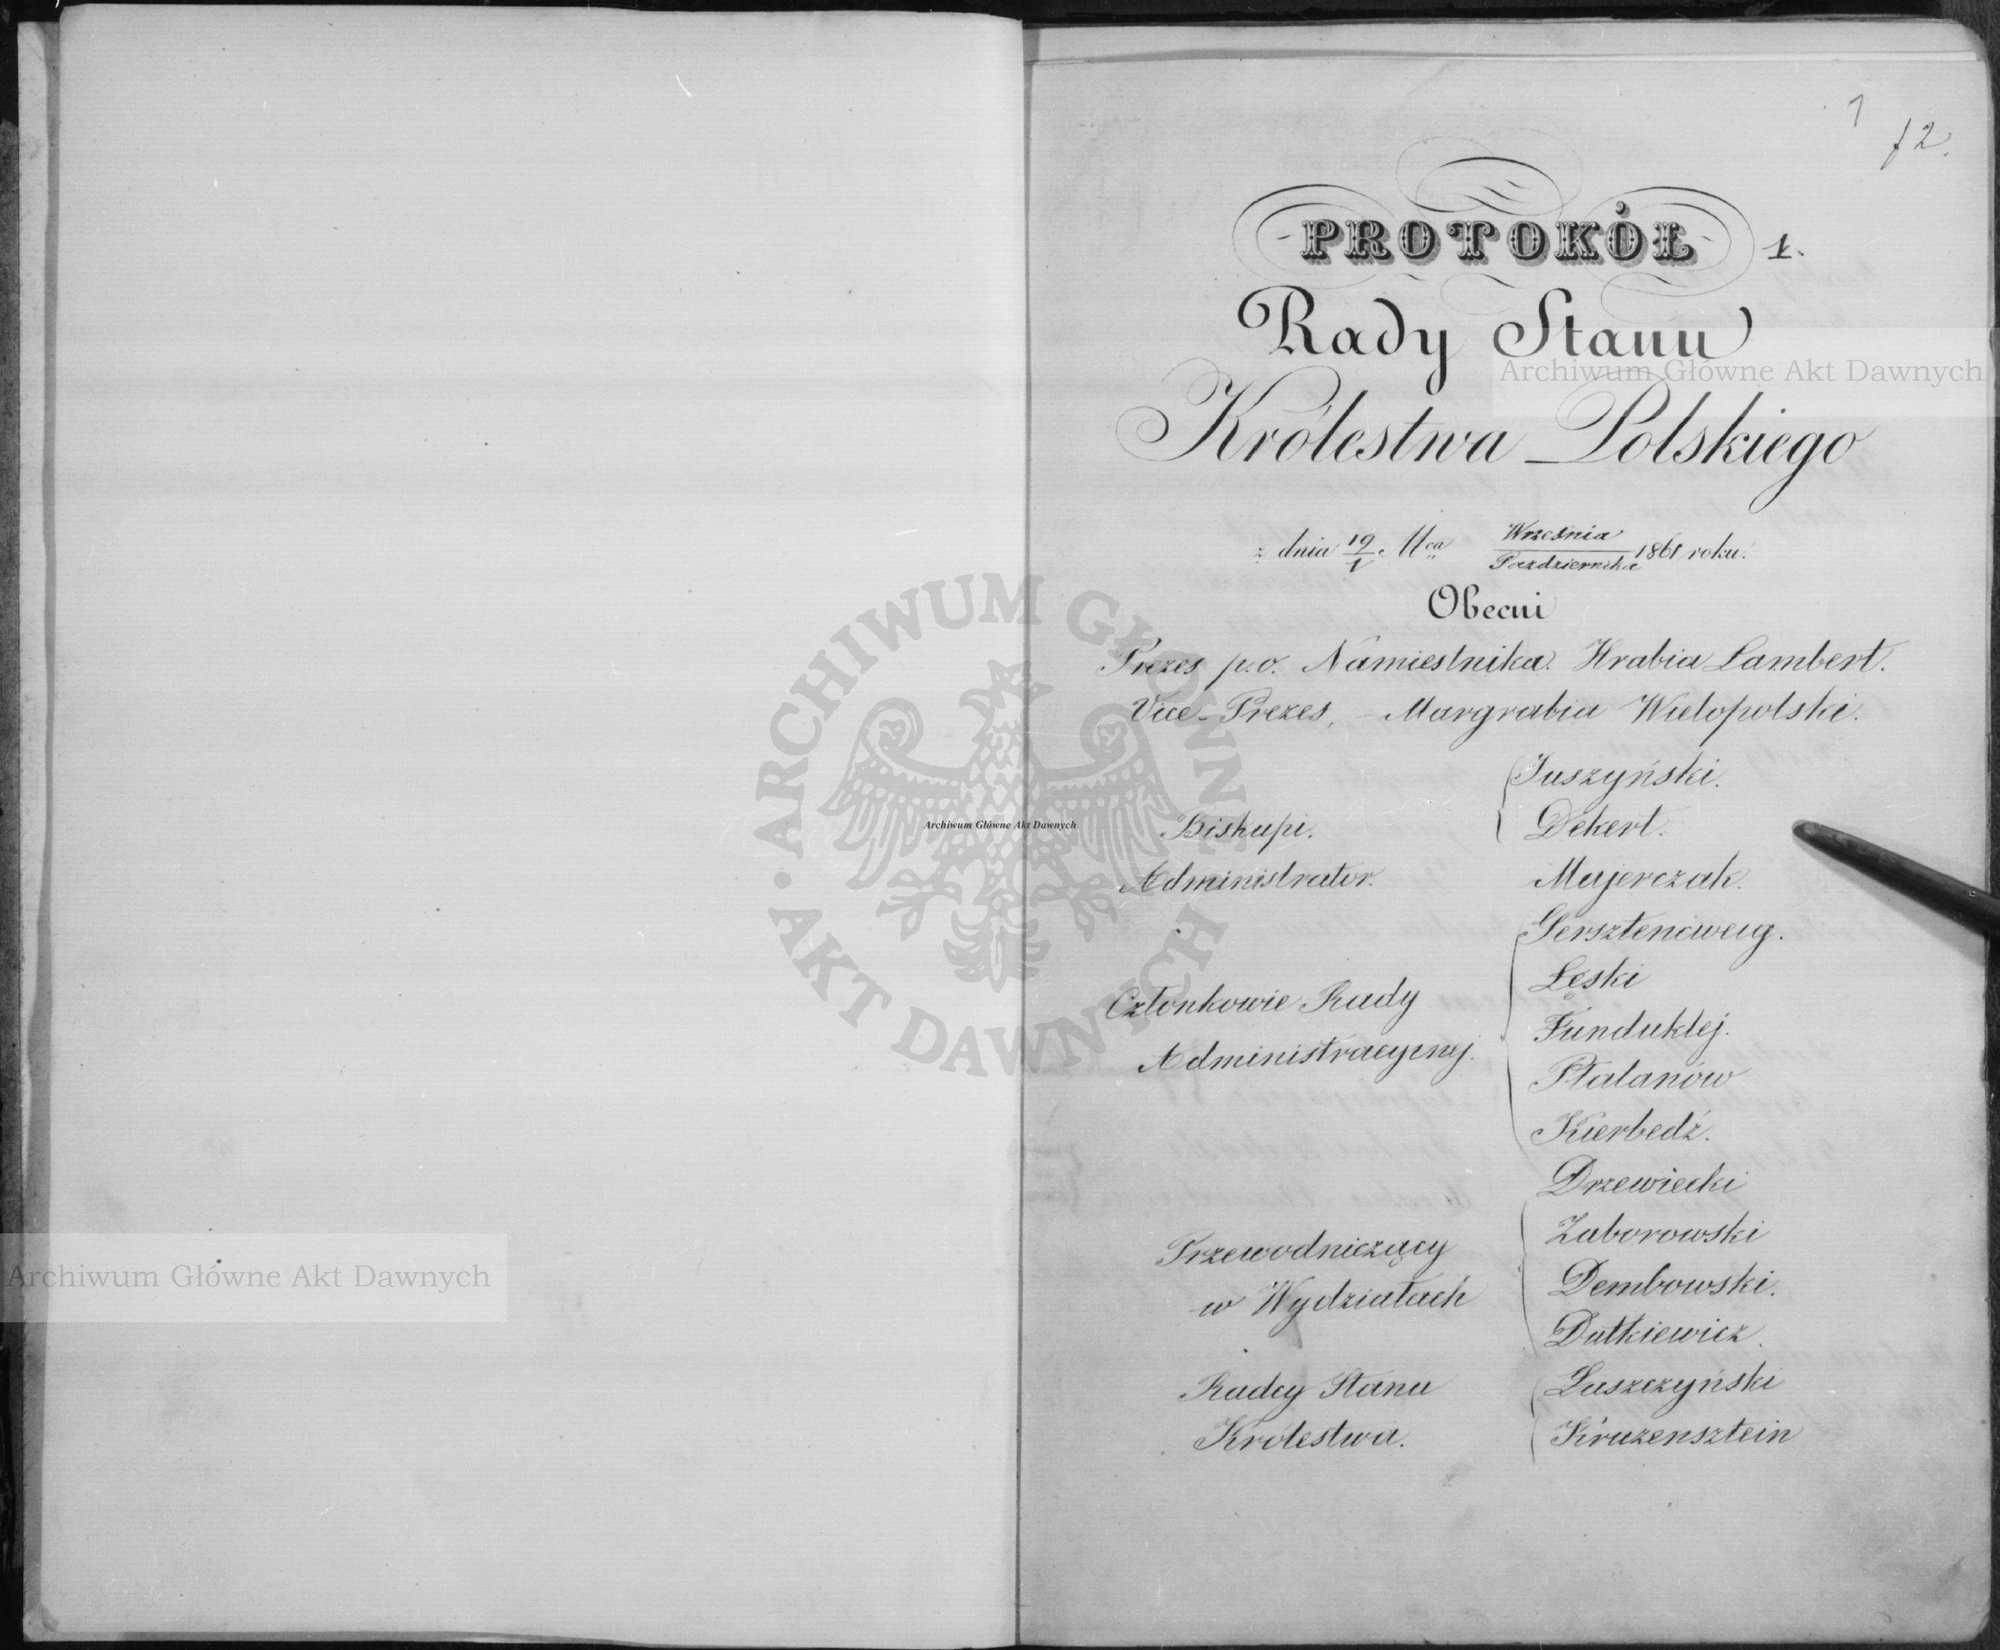 1
f 2.
PROTOKÓŁ 1.
Rady Stanu
Królestwa Polskiego
z dnia 19/1 Mca Września/Października 1861 roku.
Obecni
Prezes p.o. Namiestnika. Hrabia Lambert.
Vice-Prezes, – Margrabia Wielopolski.
Juszyński.
Biskupi. Dekert.
Administrator. Majerczak.
Gersztenċweig.
Łęski
Członkowie Rady
Funduklej.
Administracyjnej.
Płatanów
Kierbedź.
Drzewiecki
Zaborowski
Przewodniczący
Dembowski.
w Wydziałach
Dutkiewicz.
Radcy Stanu Łuszczyński
Królestwa. Kruzensztein
Archiwum Główne Akt Dawnych
Archiwum Główne Akt Dawnych
Archiwum Główne Akt Dawnych
ARCHIWUM GŁÓWNE AKT DAWNYCH